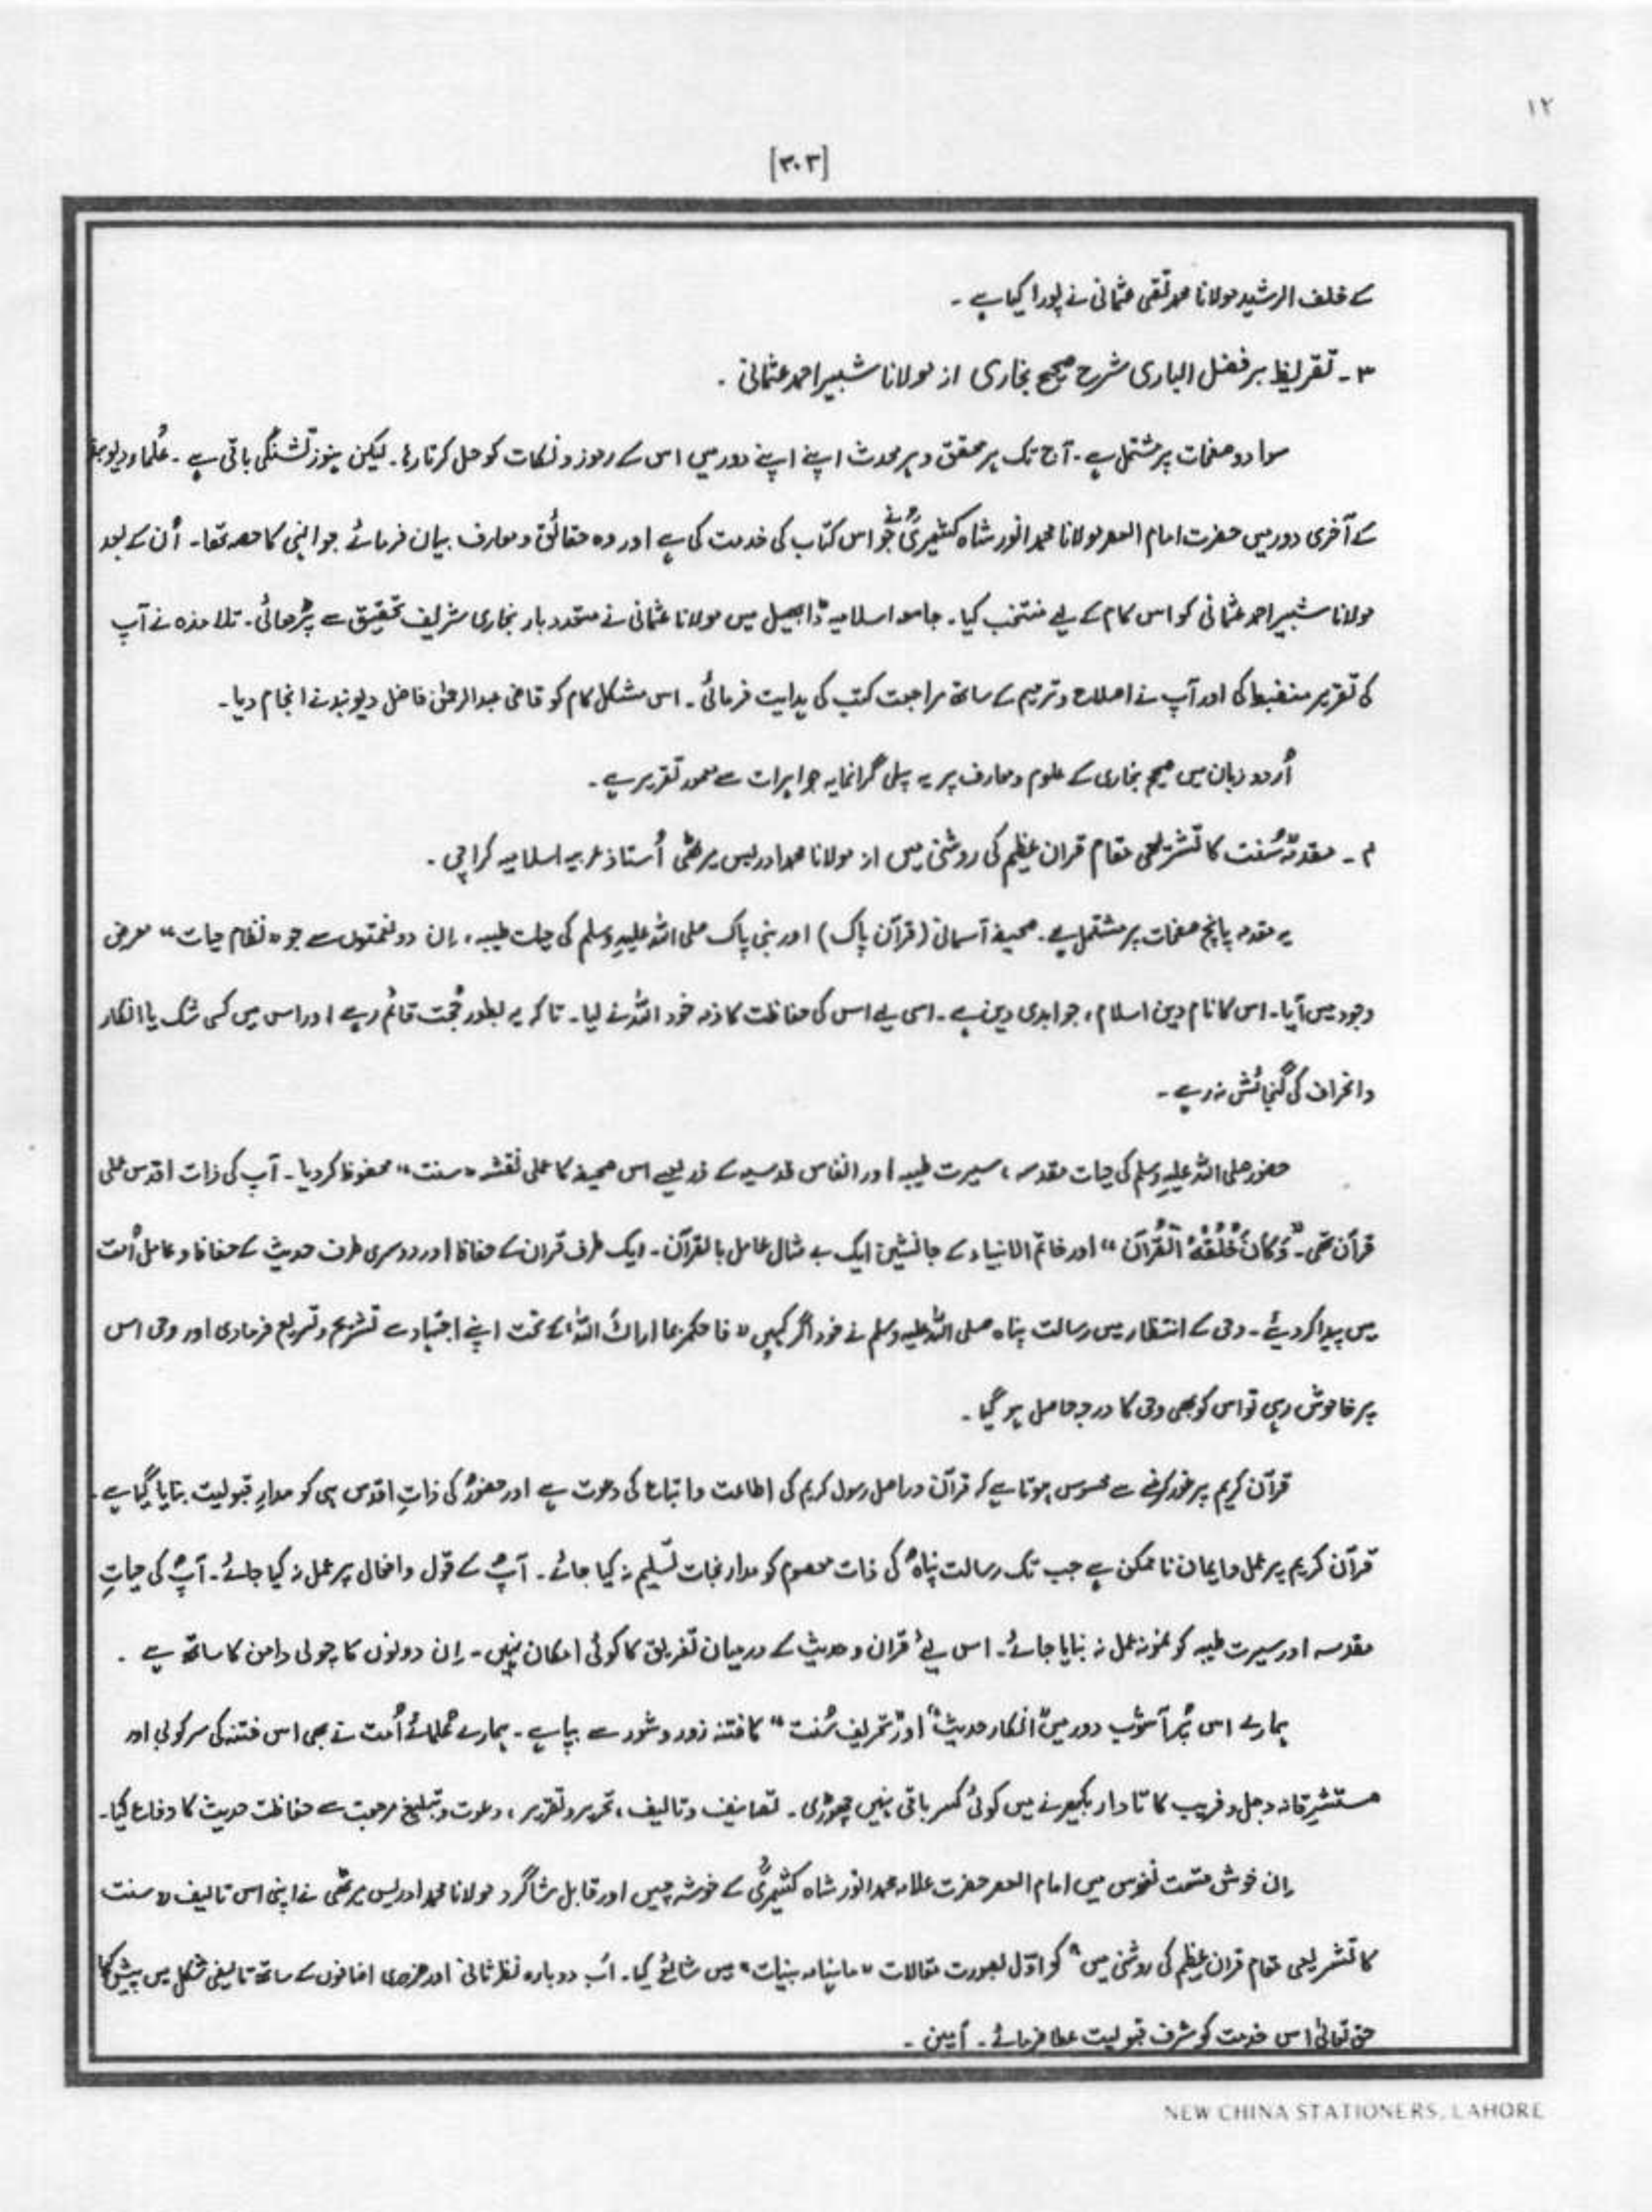 ۱۲
[۳۰۳]
کے خلف الرشید مولانا محمد تقی عثمانی نے پورا کیا ہے ۔
۳ ۔ تقریظ بر فضل الباری شرح صحیح بخاری از مولانا شبیر احمد عثمانی ۔
سوا دو صفحات پر مشتمل ہے ۔ آج تک ہر محقق و ہر محدث اپنے اپنے دور میں اس کے رموز و نکات کو حل کرتا رہا ۔ لیکن ہنوز تشنگی باقی ہے ۔ عُلماء دیوبند
کے آخری دور میں حضرت امام العصر مولانا محمد انور شاہ کشمیریؒ نے جو اس کتاب کی خدمت کی ہے اور وہ حقائق و معارف بیان فرمائے جو انہی کا حصہ تھا ۔ اُن کے بعد
مولانا شبیر احمد عثمانی کو اس کام کے لیے منتخب کیا ۔ جامعہ اسلامیہ ڈابھیل میں مولانا عثمانی نے متعدد بار بخاری شریف تحقیق سے پڑھائی ۔ تلامذہ نے آپ
کی تقریر منضبط کی اور آپ نے اصلاح و ترمیم کے ساتھ مراجعت کتب کی ہدایت فرمائی ۔ اس مشکل کام کو قاضی عبدالرحمٰن فاضل دیوبند نے انجام دیا ۔
اُردو زبان میں صحیح بخاری کے علوم و معارف پر یہ پہلی گرانمایہ جواہرات سے معمور تقریر ہے ۔
۴ ۔ مقدمۂ سُنت کا تشریعی مقام قران عظیم کی روشنی میں از مولانا محمد ادریس میرٹھی اُستاذ عربیہ اسلامیہ کراچی ۔
یہ مقدمہ پانچ صفحات پر مشتمل ہے ۔ صحیفۂ آسمانی (قرآن پاک) اور نبی پاک صلی اللہ علیہ وسلم کی حیات طیبہ ، اِن دو نعمتوں سے جو "نظام حیات" معرض
وجود میں آیا ۔ اس کا نام دین اسلام ، جو ابدی دین ہے ۔ اسی لیے اس کی حفاظت کا ذمہ خود اللہ نے لیا ۔ تاکہ یہ بطور حُجت قائم رہے اور اس میں کسی شک یا انکار
و انحراف کی گنجائش نہ رہے ۔
حضور صلی اللہ علیہ وسلم کی حیات مقدسہ ، سیرت طیبہ اور انفاس قدسیہ کے ذریعے اس صحیفہ کا عملی نقشہ "سنت" محفوظ کر دیا ۔ آپ کی ذات اقدس عملی
قرآن تھی ۔ "وَكَانَ خُلُقُهُ الْقُرْآن" اور خاتم الانبیاء کے جانشین ایک بے مثال عامل بالقرآن ۔ ایک طرف قران کے حفاظ اور دوسری طرف حدیث کے حفاظ و عامل اُمت
میں پیدا کر دیئے ۔ وحی کے انتظار میں رسالت پناہ صلی اللہ علیہ وسلم نے خود اگر کہیں "فاحکم بما اراک اللہ" کے تحت اپنے اجتہاد سے تشریح و تفریع فرمادی اور وحی اس
پر خاموش رہی تو اس کو بھی وحی کا درجہ حاصل ہو گیا ۔
قرآن کریم پر غور کرنے سے محسوس ہوتا ہے کہ قرآن دراصل رسول کریم کی اطاعت و اتباع کی دعوت ہے اور حضورؐ کی ذاتِ اقدس ہی کو مدارِ قبولیت بتایا گیا ہے ۔
قرآن کریم پر عمل و ایمان ناممکن ہے جب تک رسالت پناہؐ کی ذات معصوم کو مدار نجات تسلیم نہ کیا جائے ۔ آپؐ کے قول و افعال پر عمل نہ کیا جائے ۔ آپؐ کی حیاتِ
مقدسہ اور سیرت طیبہ کو نمونہ عمل نہ بنایا جائے ۔ اس لیے قران و حدیث کے درمیان تفریق کا کوئی امکان نہیں ۔ اِن دونوں کا چولی دامن کا ساتھ ہے ۔
ہمارے اس پُر آشوب دور میں "انکار حدیث" اور "تحریف سُنت" کا فتنہ زور و شور سے بپا ہے ۔ ہمارے عُلمائے اُمت نے بھی اس فتنہ کی سرکوبی اور
مستشرقانہ دجل و فریب کا تاروار بکھیرنے میں کوئی کسر باقی نہیں چھوڑی ۔ تصانیف و تالیف ، تحریر و تقریر ، دعوت و تبلیغ ہر جہت سے حفاظت حدیث کا دفاع کیا ۔
اِن خوش قسمت نفوس میں امام العصر حضرت علامہ محمد انور شاہ کشمیریؒ کے خوشہ چیں اور قابل شاگرد مولانا محمد ادریس میرٹھی نے اپنی اس تالیف "سنت
کا تشریعی مقام قران عظیم کی روشنی میں" کو اوّل بصورت مقالات "ماہنامہ بینات" میں شائع کیا ۔ اَب دوبارہ نظر ثانی اور ضروری اضافوں کے ساتھ تالیفی شکل میں پیش کیا
حق تعالیٰ اس خدمت کو شرف قبولیت عطا فرمائے ۔ آمین ۔
NEW CHINA STATIONERS, LAHORE